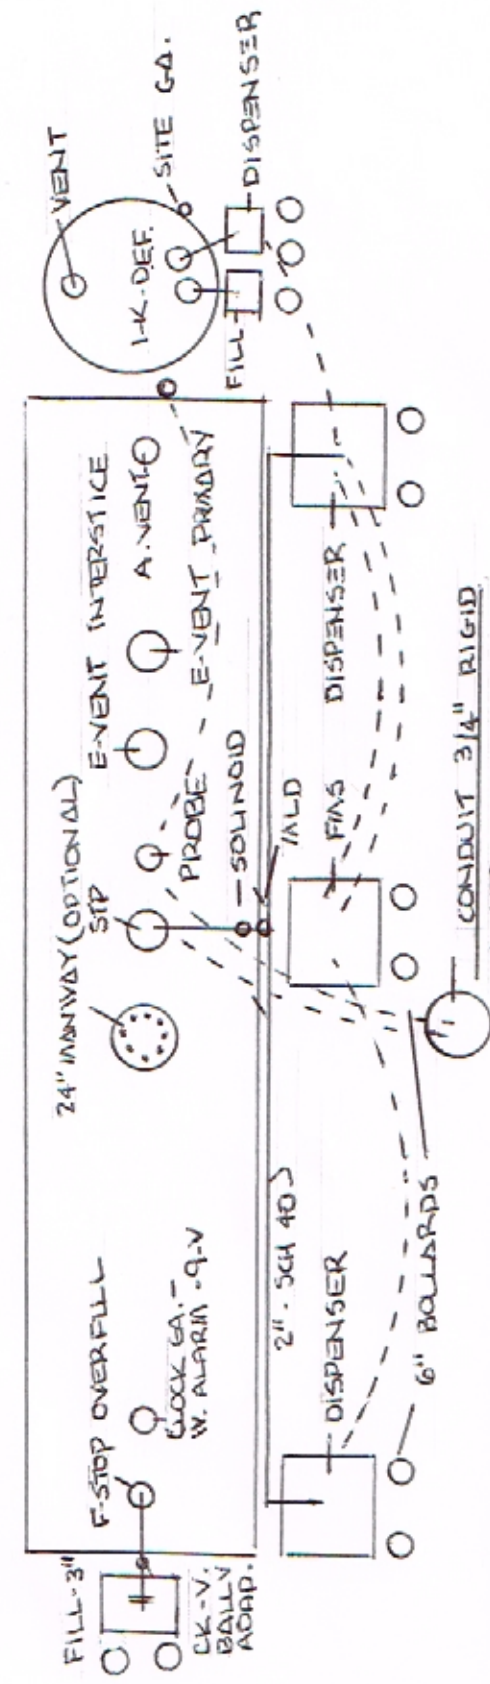 FILL-3"
CK-V.
BALL V
ADAP.
F-STOP OVERFILL
CLOCK GA.-
W. ALARM-9-V
24" MANWAY (OPTIONAL)
STP
PROBE
E-VENT INTERSTICE
E-VENT PRIMARY
A.VENT
VENT
1-K-DEF.
SITE GA.
FILL
DISPENSER
SOLINOID
2"-SCH 40
DISPENSER
FMS
DISPENSER
6" BOLLARDS
CONDUIT 3/4" RIGID